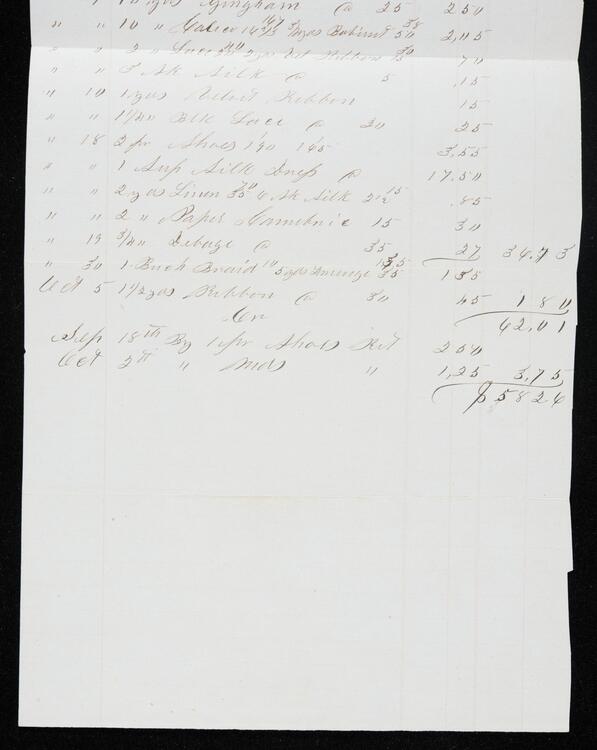 " 10 yds Gingham @ 25 2 50
" " 10 " Calico yds Bobinet 50 2,05
" " 2 " Lace yds Ribbon 70
" " 3 Sk Silk @ 5 ,15
" 10 1 yds Velvet Ribbon 15
" " " Blk Lace @ 30 25
" 18 2 pr Shoes 190 3,55
" " 1 Sup Silk Dress @ 17,50
" " 2 yds Linen 35 Sk Silk ,85
" " 2 " Paper Cambric 15 30
" 19 3/4 " Debage @ 35 27 34,73
" 30 1 Braid 10 5 yds 35 1 35
Oct 5 1 1/2 yds Ribbon @ 30 45 1 80
Cr 62,01
Sep 18th By 1 pr Shoes Ret 2 50
Oct 2nd " Mds " 1,25 3,75
$ 58 26